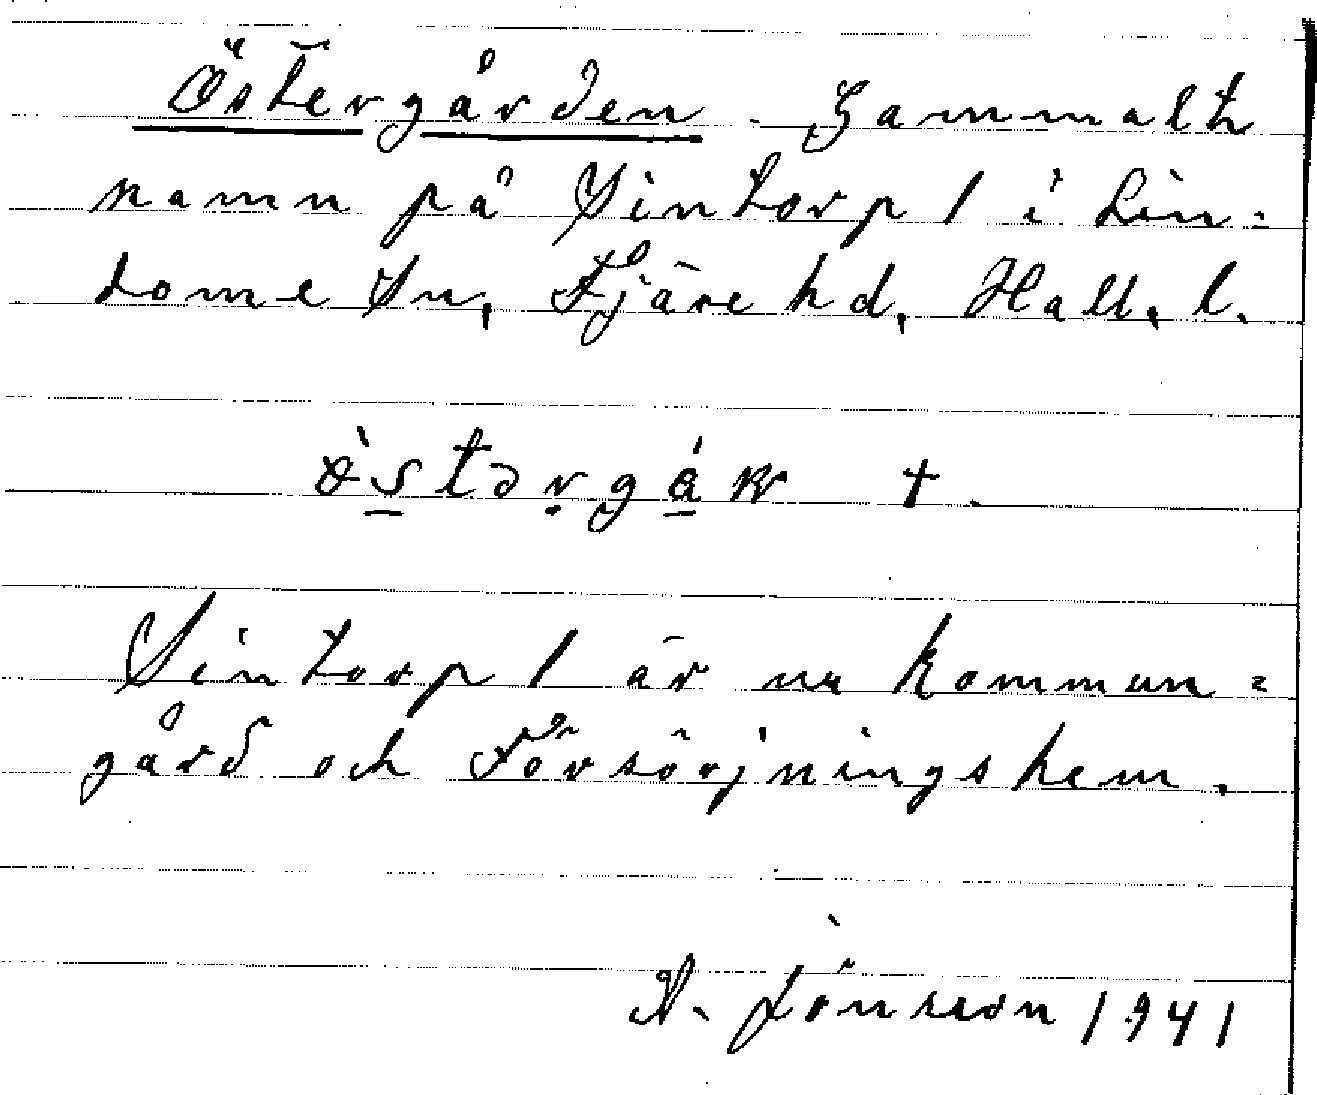 Östergården. Gammalt
namn på Sintorp 1 i Lin-
dome sn, Fjäre hd, Hall. l.
†.
Sintorp 1 är nu kommun-
gård och Försörjningshem.
A. Jönsson 1941